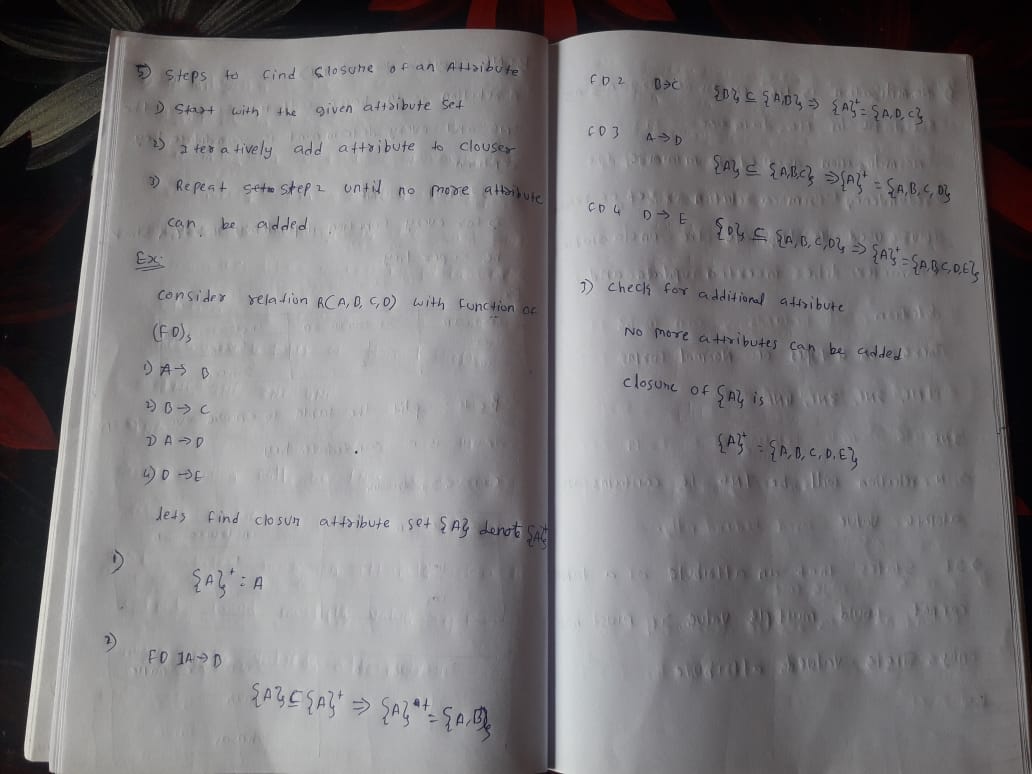 5) Steps to find Closure of an Attribute
1) Start with the given attribute set
2) Iteratively add attribute to clouser
3) Repeat step 2 until no more attribute
can be added.
Ex:
consider relation R(A, B, C, D) with function of
(FD)s
1) A → B
2) B → C
3) A → D
4) D → E
lets find closun attribute set {A} denot {A}+
1)
{A}+ = A
2)
FD 1 A → B
{A} ⊆ {A}+ ⇒ {A}+ = {A, B}
FD 2 B → C
{B} ⊆ {A, B} ⇒ {A}+ = {A, B, C}
FD 3 A → D
{A} ⊆ {A, B, C} ⇒ {A}+ = {A, B, C, D}
FD 4 D → E
{D} ⊆ {A, B, C, D} ⇒ {A}+ = {A, B, C, D, E}
3) check for additional attribute
No more attributes can be added
closure of {A} is
{A}+ = {A, B, C, D, E}